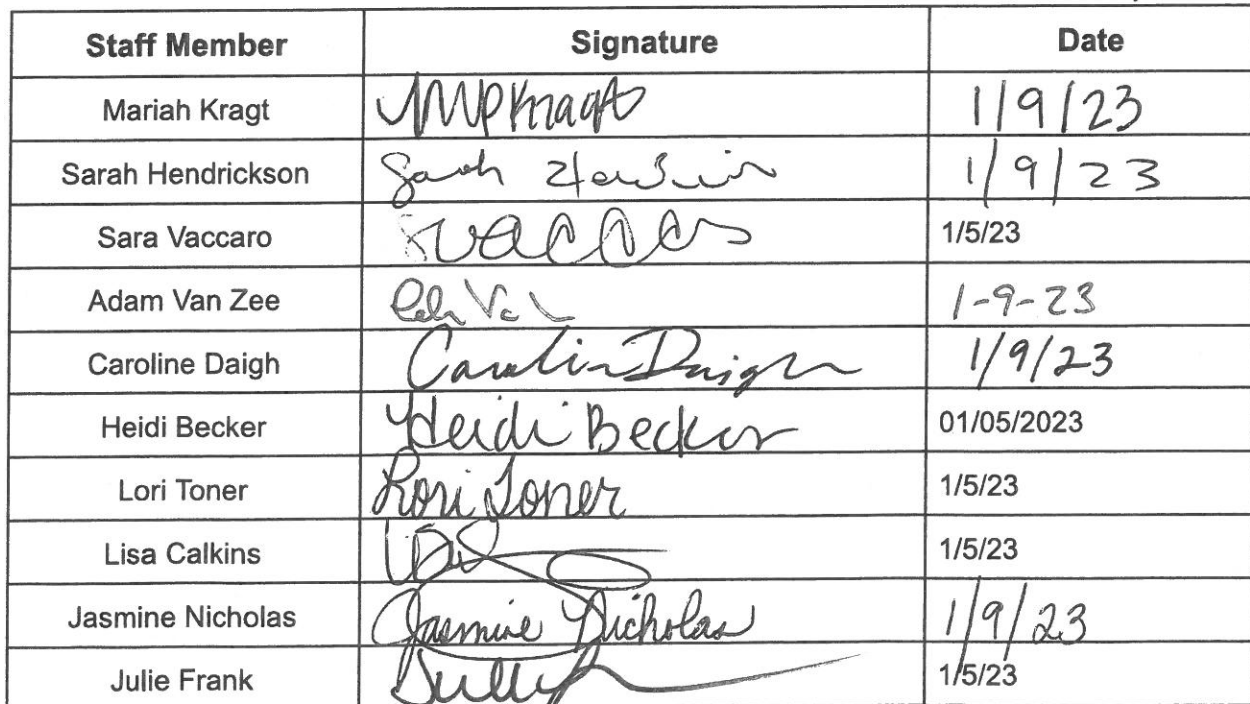 Staff Member Signature Date
Mariah Kragt MPKragt 1/9/23
Sarah Hendrickson Sarah 1/9/23
Sara Vaccaro 1/5/23
Adam Van Zee 1-9-23
Caroline Daigh Caroline Daigh 1/9/23
Heidi Becker Heidi Becker 01/05/2023
Lori Toner Lori Toner 1/5/23
Lisa Calkins 1/5/23
Jasmine Nicholas Jasmine Nicholas 1/9/23
Julie Frank 1/5/23